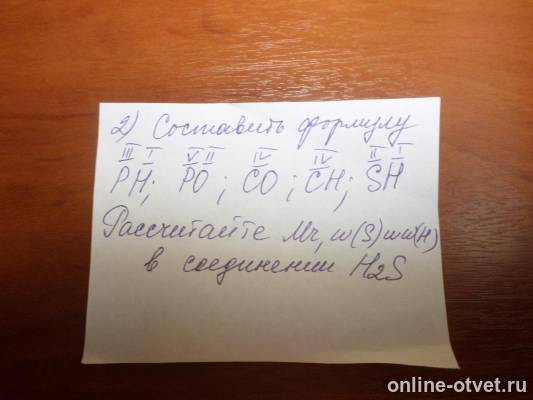 2) Составить формулу
III I V II IV IV II I
PH; PO; CO; CH; SH
Рассчитайте Mr, w(S) и w(H)
в соединении H2S
online-otvet.ru